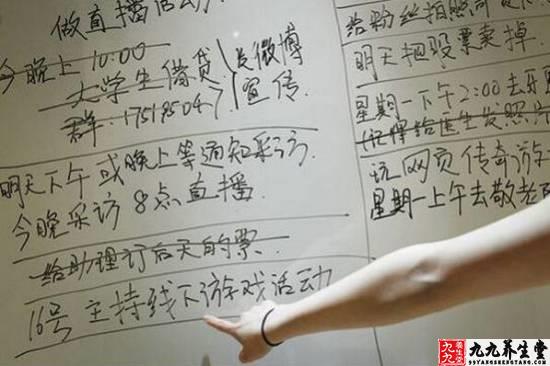 做直播活动
今晚上 10:00
大学生借贷
群: 175185047
发微博
宣传.
明天下午 或晚上等通知采访.
今晚采访 8点直播
给助理订后天的票.
16号 主持线下游戏活动
给粉丝拍照
明天把股票卖掉.
星期一下午2:00去牙
(记得给医生发照片
玩网页传奇游
星期一上午去敬老
九九养生堂
99YANGSHENGTANG.COM